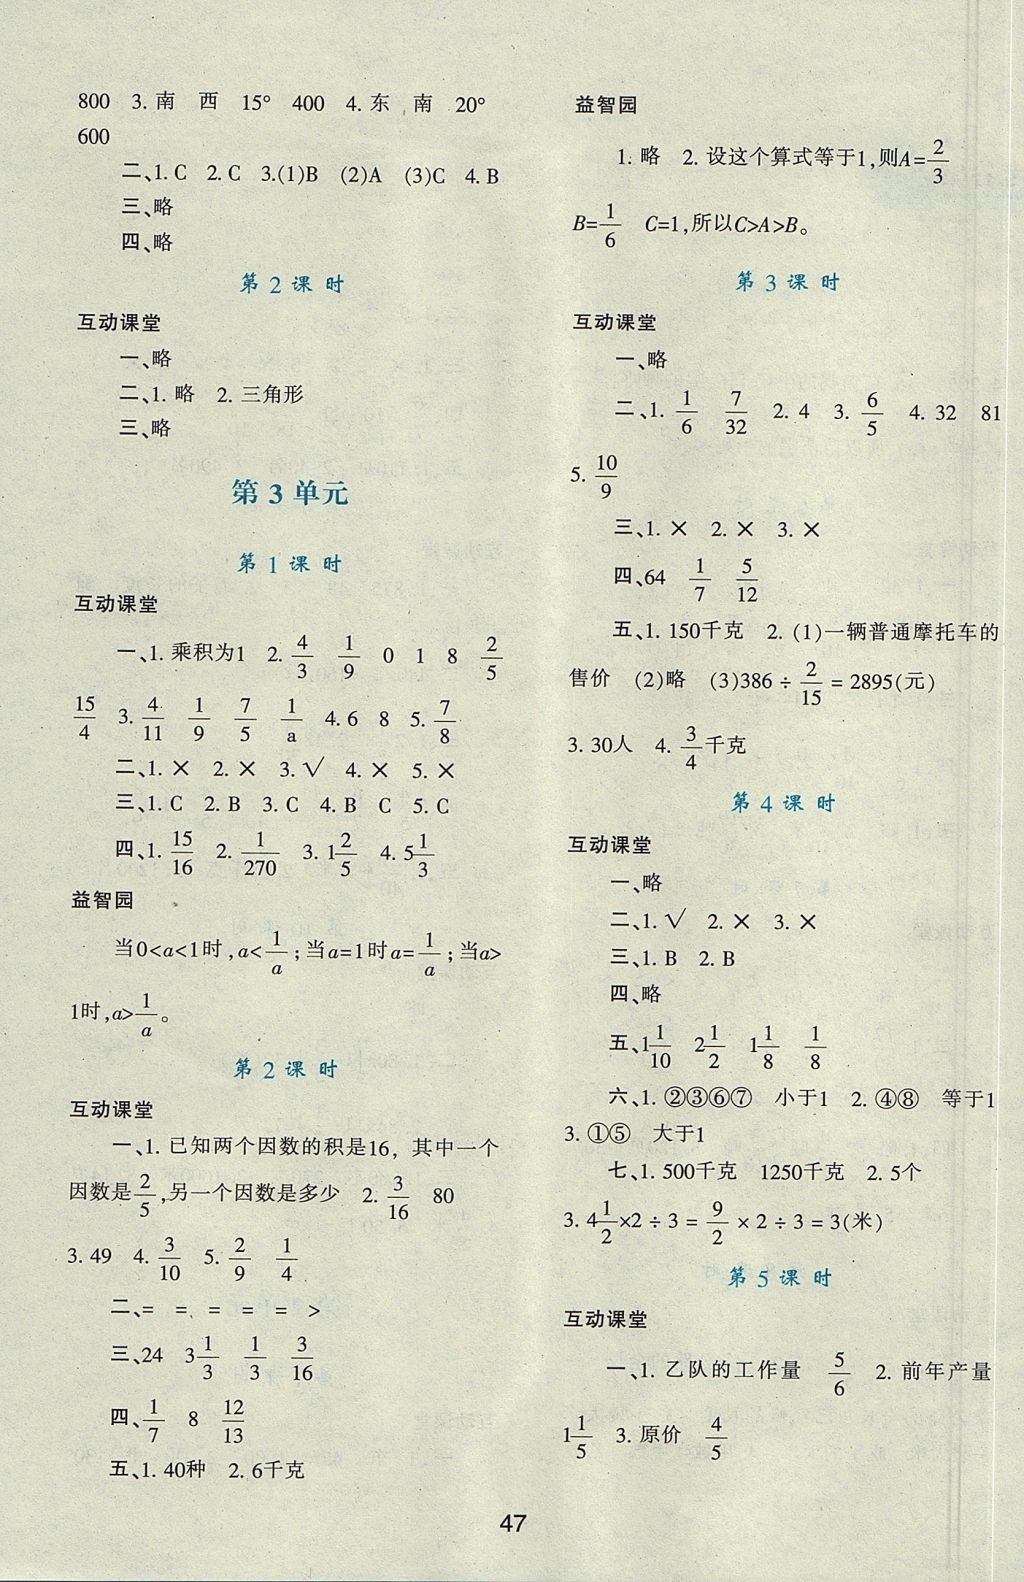 800 3.南 西 15° 400 4.东 南 20°
600
二、1.C 2.C 3.(1)B (2)A (3)C 4.B
三、略
四、略
第2课时
互动课堂
一、略
二、1.略 2.三角形
三、略
第3单元
第1课时
互动课堂
一、1.乘积为1 2. 4/3 1/9 0 1 8 2/5
15/4 3. 4/11 1/9 7/5 1/a 4.6 8 5. 7/8
二、1.× 2.× 3.√ 4.× 5.×
三、1.C 2.B 3.C 4.B C 5.C
四、1. 15/16 2. 1/270 3. 1 2/5 4. 5 1/3
益智园
当0<a<1时,a<1/a;当a=1时a=1/a;当a>
1时,a>1/a。
第2课时
互动课堂
一、1.已知两个因数的积是16，其中一个
因数是2/5,另一个因数是多少 2. 3/16 80
3.49 4. 3/10 5. 2/9 1/4
二、= = = = = >
三、24 3 1/3 1/3 3/16
四、1/7 8 12/13
五、1.40种 2.6千克
益智园
1.略 2.设这个算式等于1,则A=2/3
B=1/6 C=1,所以C>A>B。
第3课时
互动课堂
一、略
二、1. 1/6 7/32 2.4 3. 6/5 4.32 81
5. 10/9
三、1.× 2.× 3.×
四、64 1/7 5/12
五、1.150千克 2.(1)一辆普通摩托车的
售价 (2)略 (3)386÷2/15=2895(元)
3.30人 4. 3/4千克
第4课时
互动课堂
一、略
二、1.√ 2.× 3.×
三、1.B 2.B
四、略
五、1 1/10 2 1/2 1 1/8 1/8
六、1.②③⑥⑦ 小于1 2.④⑧ 等于1
3.①⑤ 大于1
七、1.500千克 1250千克 2.5个
3. 4 1/2×2÷3=9/2×2÷3=3(米)
第5课时
互动课堂
一、1.乙队的工作量 5/6 2.前年产量
1 1/5 3.原价 4/5
47